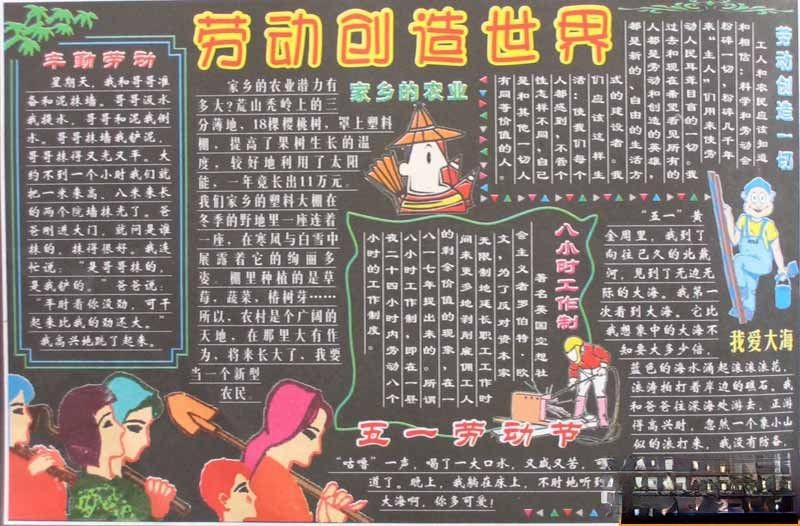 劳动创造世界
辛勤劳动
星期天，我和哥哥准
备和泥抹墙。哥哥汲水
我提水，哥哥和泥我倒
水。哥哥抹墙我铲泥，
哥哥抹得又光又平。大
约不到一个小时我们就
把一米来高、八米来长
的两个院墙抹光了。爸
爸刚进大门，就问是谁
抹的，抹得很好。我连
忙说：“是哥哥抹的，
是我铲的。”爸爸说：
“平时看你没劲，可干
起来比我的劲还大。”
我高兴地跳了起来。
家乡的农业
家乡的农业潜力有
多大？荒山秃岭上的三
分薄地、18棵樱桃树，罩上塑料
棚，提高了果树生长的温
度，较好地利用了太阳
能，一年竟长出11万元。
我们家乡的塑料大棚在
冬季的野地里一座连着
一座，在寒风与白雪中
展露着它的绚丽多
姿。棚里种植的是草
莓，蔬菜，椿树芽……
所以，农村是个广阔的
天地，在那里大有作
为，将来长大了，我要
当一个新型
农民。
劳动创造一切
工人和农民应该知道
和相信：科学和劳动会
粉碎一切，粉碎几千年
来“主人”们用来使劳
动人民耳聋目盲的一切。我
过去和现在希望看见所有的
人都是劳动和创造的英雄，
都是新的、自由的生活方
式的建设者。我
们应该这样生
活：使我们每个
人都感到，不管个
性怎样不同，自己
是和其他一切人
有同等价值的人。
八小时工作制
著名英国空想社
会主义者罗伯特·欧
文，为了反对资本家
无限制地延长职工工作时
间来更多地剥削雇佣工人
的剩余价值的现象，在一
八一七年提出来的。所谓
八小时工作制，即在一昼
夜二十四小时内劳动八个
小时的工作制度。
五一劳动节
我爱大海
“五一”黄
金周里，我到了
向往已久的北戴
河，见到了无边无
际的大海。我第一
次看到大海。它比
我想象中的大海不
知要大多少倍，
蓝色的海水涌起滚滚浪花，
波涛拍打着岸边的礁石。我
和爸爸往深海处游去，正游
得高兴时，忽然一个象小山
似的浪打来，我没有防备，
“咕噜”一声，喝了一大口水，又咸又苦，可
道了。晚上，我躺在床上，不时地听到
大海啊，你多可爱！